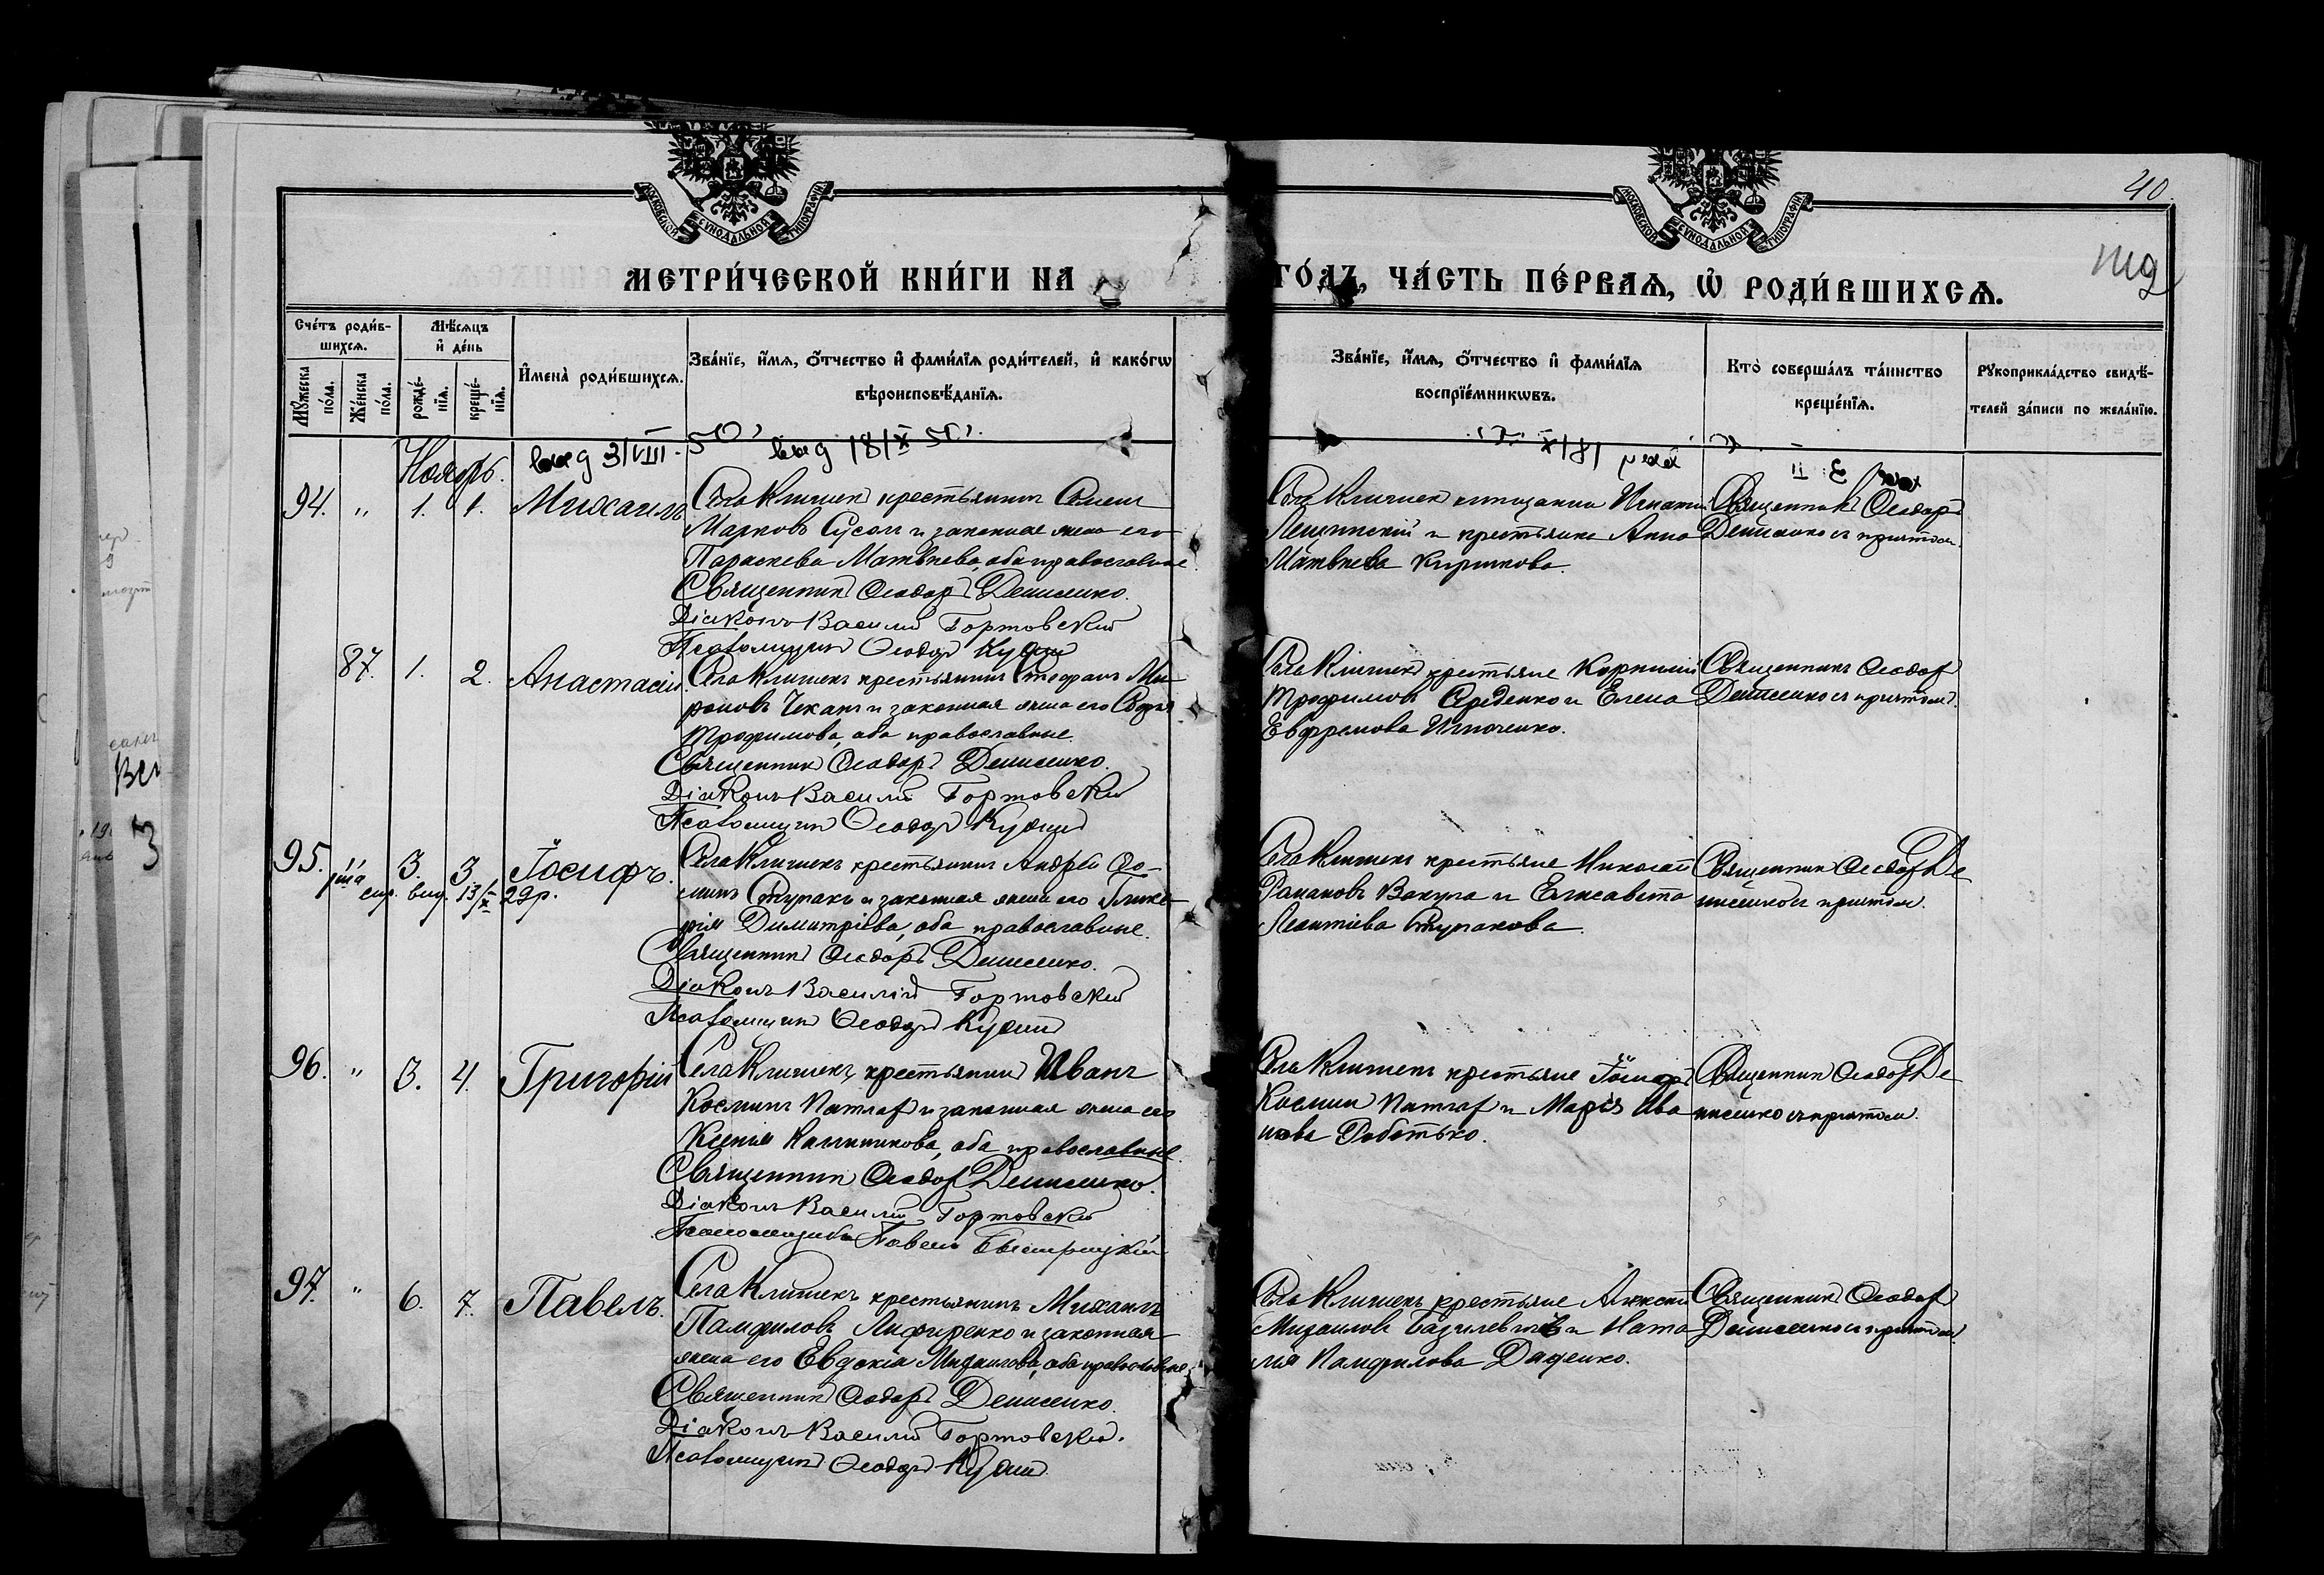 40.
МОСКОВСКОЙ СѴНОДАЛЬНОЙ ТИПОГРАФІИ
МОСКОВСКОЙ СѴНОДАЛЬНОЙ ТИПОГРАФІИ
МЕТРИ́ЧЕСКОЙ КНИ́ГИ НА ГО́ДЪ, ЧА́СТЬ ПЕ́РВАѦ, Ѡ РОДИ́ВШИХСѦ.
Сче́тъ роди́в-
шихсѧ.
Мѣ́сѧцъ
и҆ де́нь
Мꙋ́жеска по́ла.
Же́нска по́ла.
рожде́-
нїѧ.
креще́-
нїѧ.
И҆мена̀ роди́вшихсѧ.
Зва́нїе, и҆́мѧ, ѻ҆́тчество и҆ фами́лїѧ роди́телей, и҆ како́гѡ
вѣроисповѣ́данїѧ.
Зва́нїе, и҆́мѧ, ѻ҆́тчество и҆ фами́лїѧ
воспрїе́мникѡвъ.
Кто̀ соверша́лъ та́инство
креще́нїѧ.
Рꙋкоприкла́дство свидѣ́-
телей за́писи по жела́нїю.
Ноябрь.
вид 3/VIII. 50, вид 18/X 51.
94. " 1. 1. Михаилъ
Села Клишек крестьянин Семен
Марковъ Сусол и законная жена его
Параскева Матвеева, оба православные.
Священник Феодор Денисенко.
Діаконъ Василій Гортовскій
Псаломщик Феодор Кудин
Села Клишек Игнатий
Лещинскій и крестьянка Анна
Матвеева Кирикова.
Священник Феодор
Денисенко с причтом.
87. 1. 2. Анастасія.
Села Клишекъ крестьянин Стефанъ Ми-
роновъ Чеканъ и законная жена его София
Трофимова, оба православные.
Священник Феодор Денисенко.
Діаконъ Василій Гортовскій
Псаломщик Феодор Кудин
Села Клишек крестьяне Корнилій
Трофимовъ Середенко и Елена
Евфремова Игнатенко.
Священникъ Феодор
Денисенко с причтом.
95. 3. 3. Іосифъ.
вид. 13/X 29р.
Села Клишекъ крестьянин Андрей Фо-
минъ Ступакъ и законная жена его Глике-
рія Димитріева, оба православные.
Священник Феодоръ Денисенко.
Діаконъ Василій Гортовскій
Псаломщик Феодор Кудин
Села Клишекъ крестьяне Николай
Романовъ Вакула и Елисавета
Леонтіева Ступакова.
Священник Феодор Де
нисенко с причтом.
96. " 3. 4. Григорій
Села Клишекъ, крестьянин Иванъ
Космин Патлаг и законная жена его
Ксенія Каллиникова, оба православные.
Священник Феодор Денисенко.
Діаконъ Василій Гортовскій
Павел Быстрицкій
Села Клишекъ крестьяне Іосиф
Космин Патлаг и Марія Ива
нова Роботько.
Священник Феодор Де
нисенко с причтом.
97. " 6. 7. Павелъ.
Села Клишекъ крестьянинъ Михаилъ
Памфиловъ Лифиренко и законная
жена его Евдокія Михаилова, оба православные.
Священник Феодор Денисенко.
Діаконъ Василій Гортовскій.
Псаломщик Феодор Кудин
Села Клишекъ крестьяне Алексей
Михаиловъ Базилевичъ и Ната
лія Памфилова Даденко.
Священник Феодор
Денисенко с причтом.